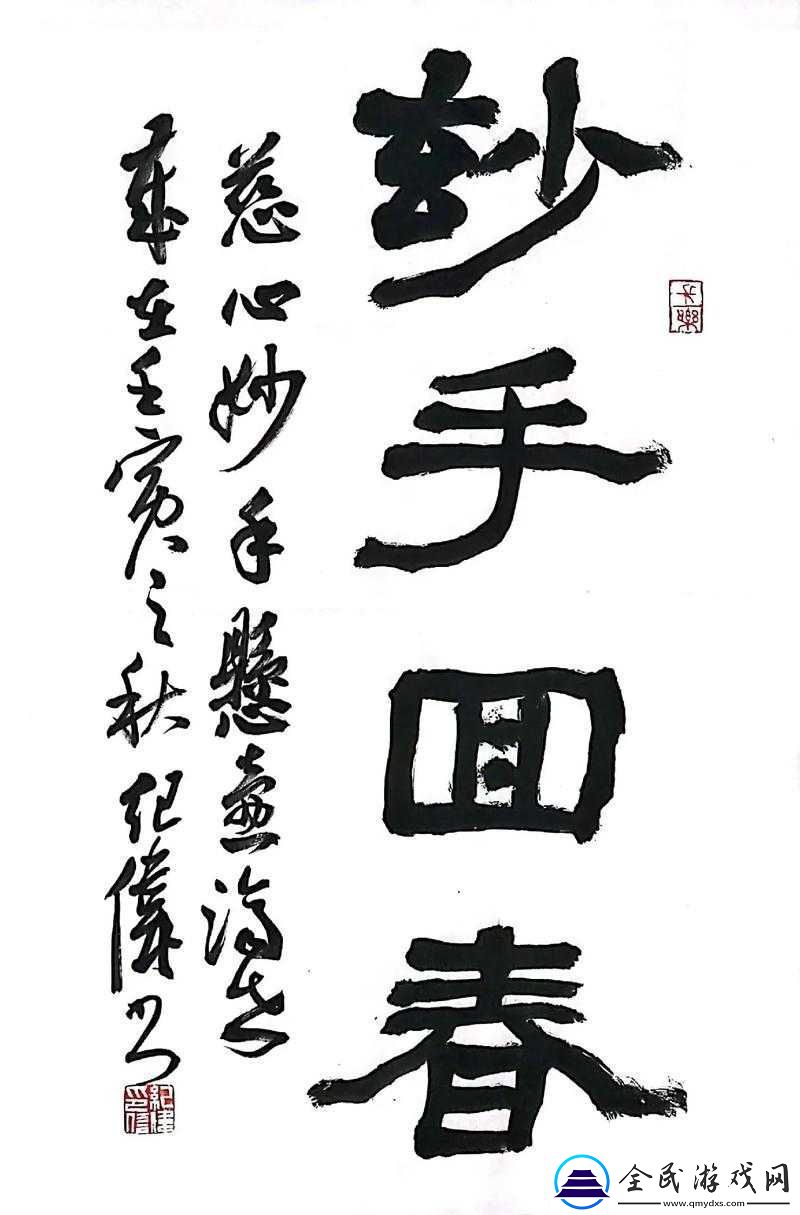 玅手回春
慈心妙手懸壺濟世
歲在壬寅之秋 纪偉书
全民游戏网
www.qmydxs.com